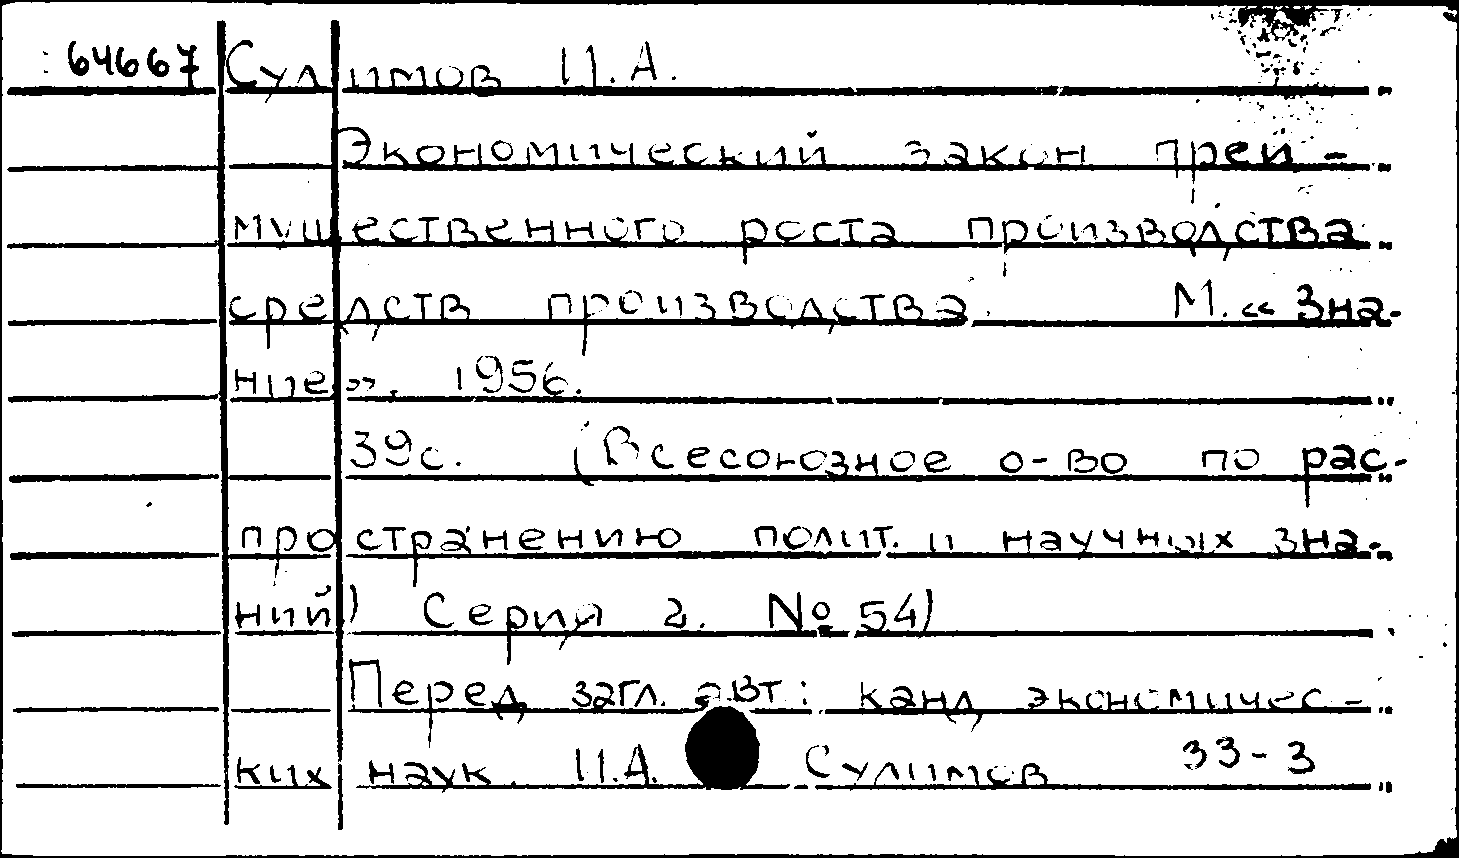 64667 Сулимов И.А.
Экономический закон преи-
мущественного роста производства
средств производства. М. «Зна-
ние», 1956.
39с. (Всесоюзное о-во по рас-
пространению полит. и научных зна-
ний) Серия 2. № 54)
Перед загл. авт.: канд экономичес-
ких наук. И.А. Сулимов 33-3